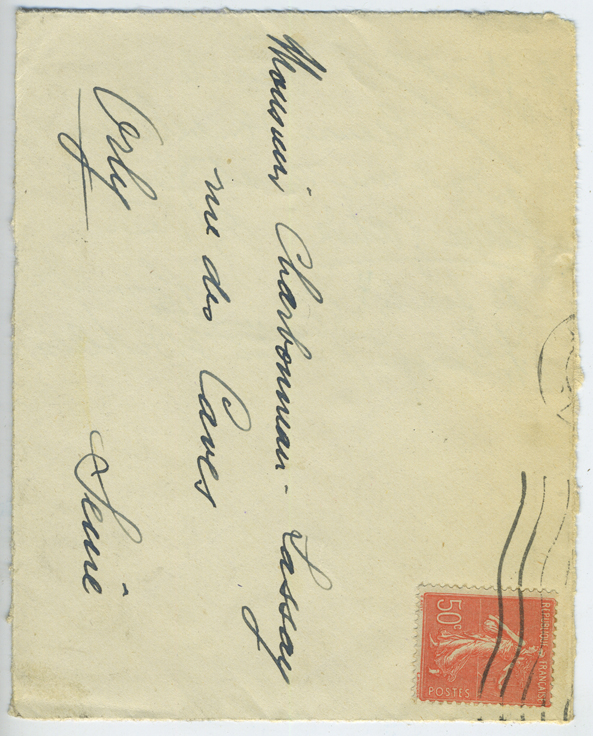 Monsieur Charbonneau-Lassay
rue des Caves
Orly Seine
REPUBLIQUE FRANÇAISE
50c
POSTES